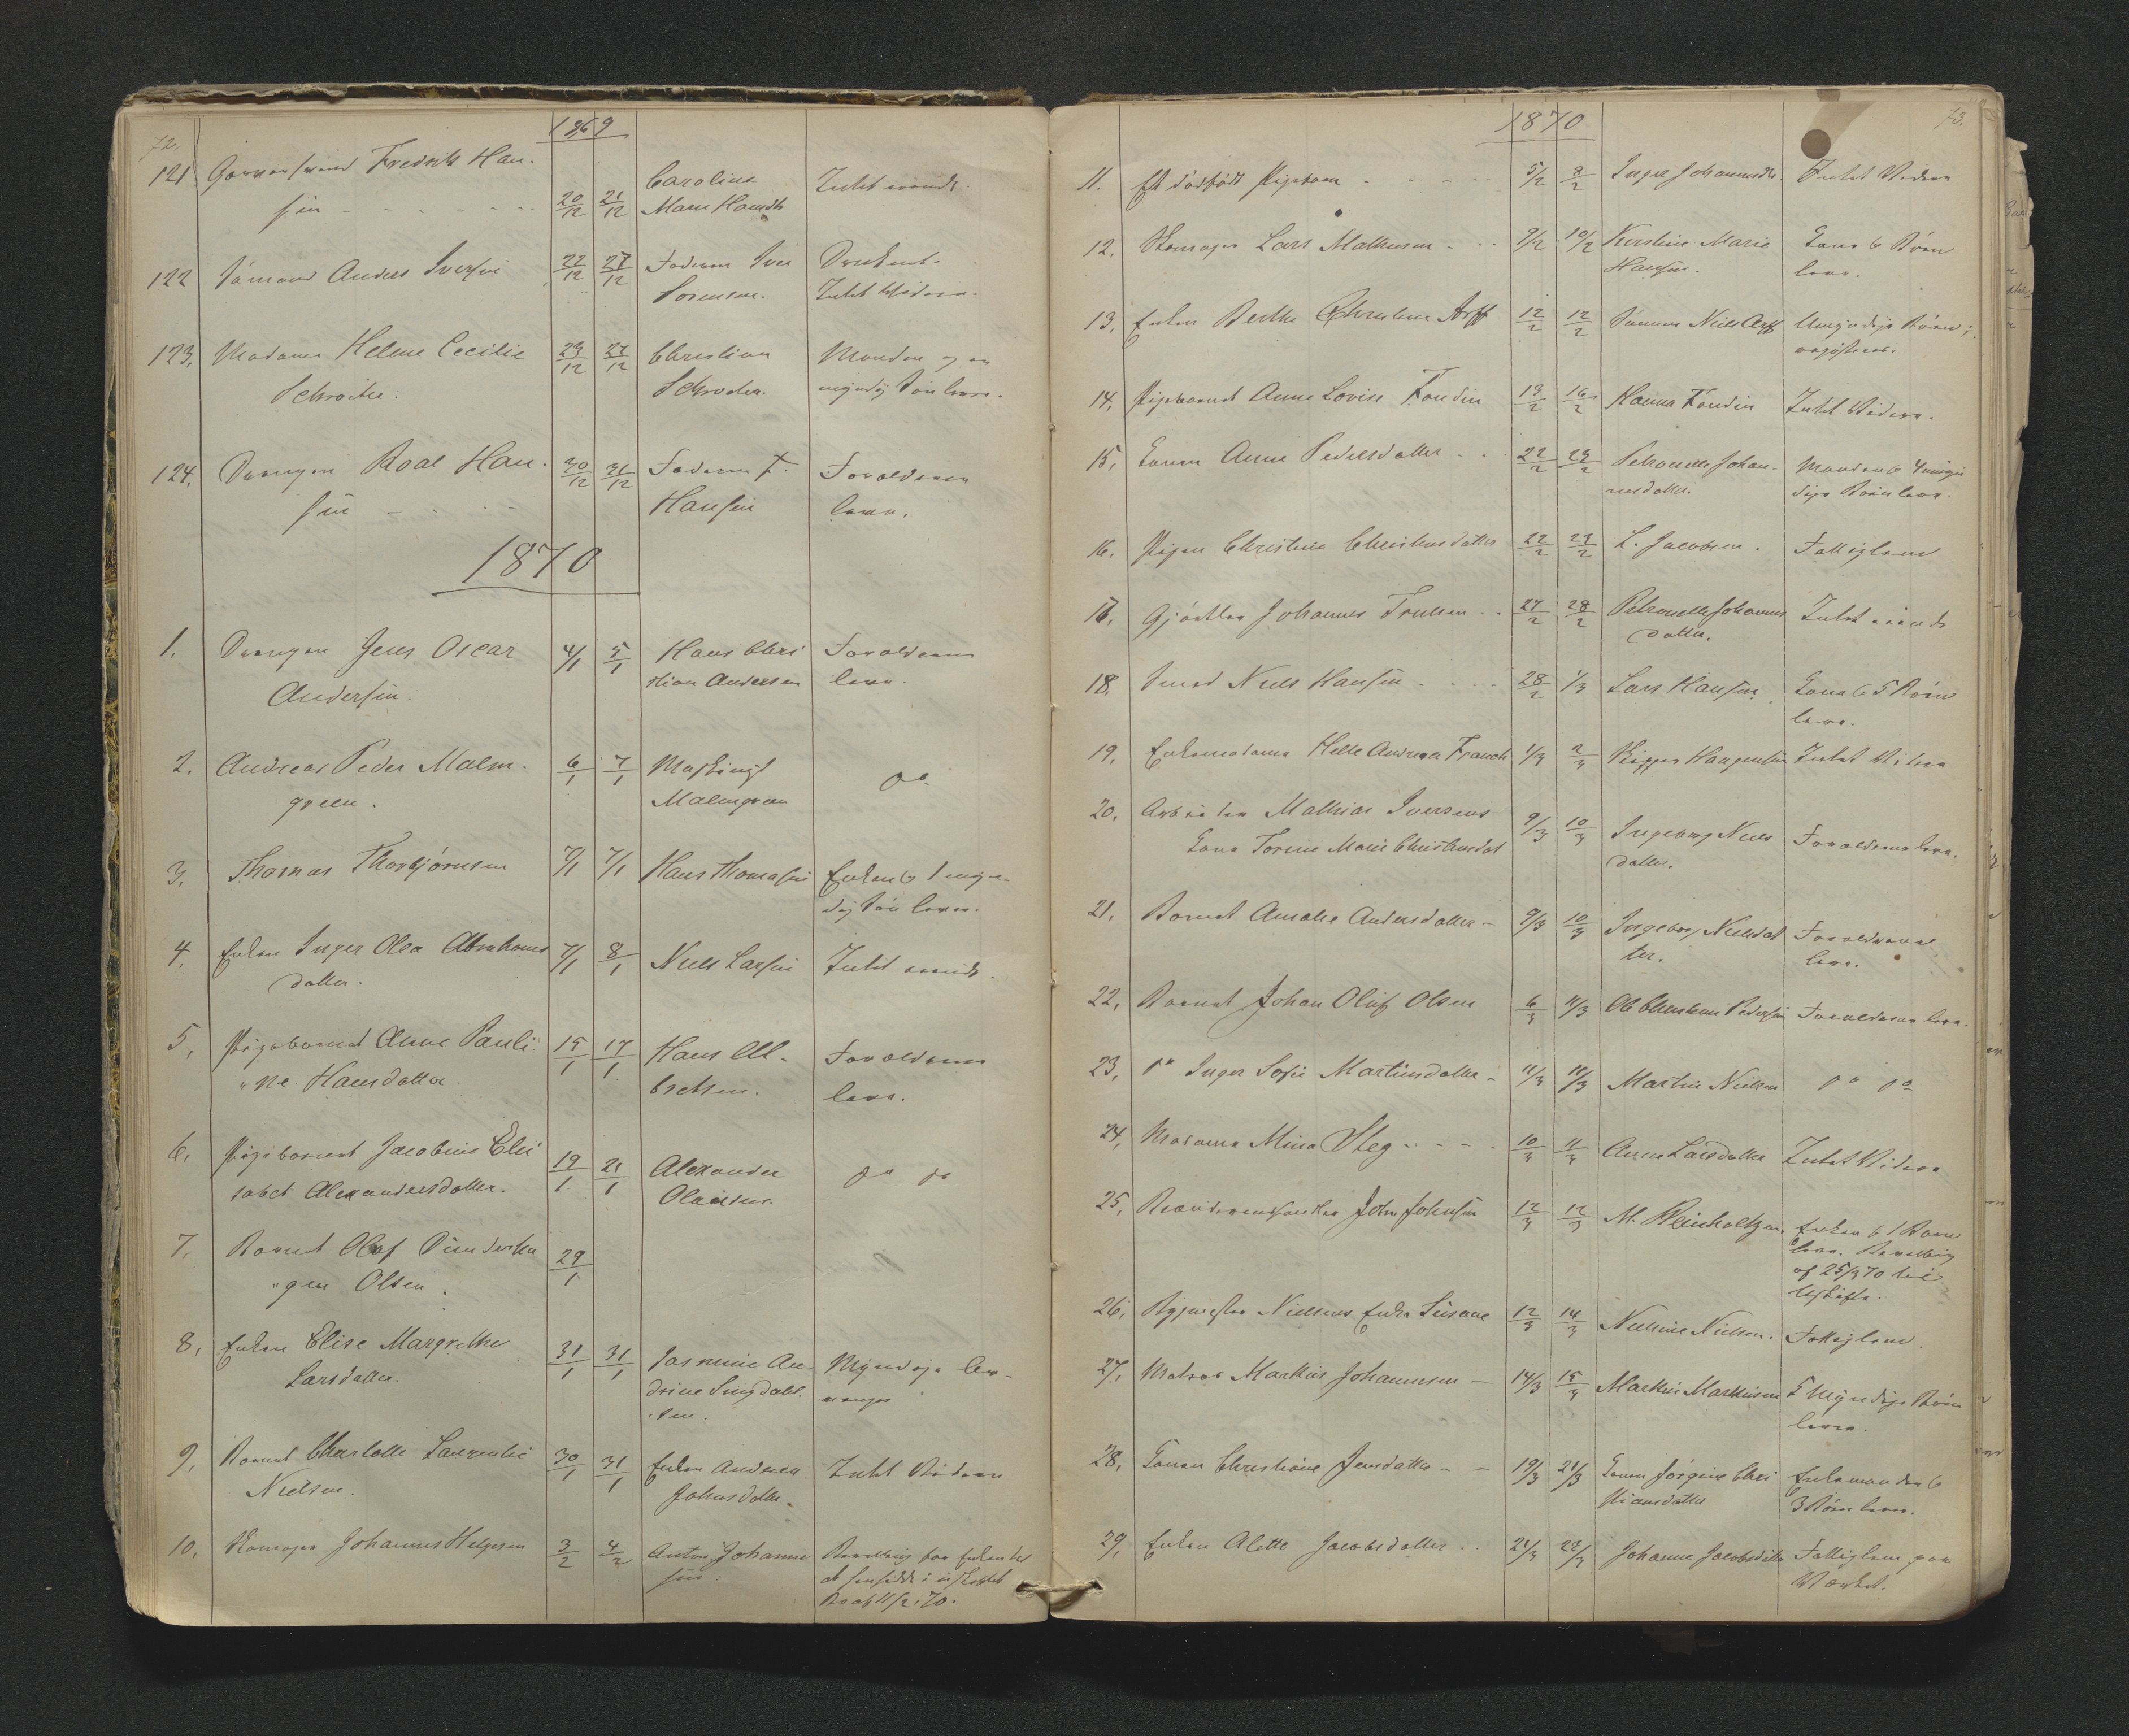 72.
1869
121. Fredrik Han-
sen - - - - - 20/12 21/12 Caroline Marie Hansdt Intet
122 Sømand Anders Iversen 22/12 27/12 Faderen Iver Druknet.
Sørensen. Intet Videre.
123. Madame Helene Cecilie 23/12 27/12 Christian Manden og en
Schrøder. Schrøder. myndig Søn lever.
124. Drengen Roal Han- 30/12 31/12 Faderen F. Forældrene
sen Hansen lever.
1870
1. Drengen Jens Oscar 4/1 5/1 Hans Chri Forældrene
Andersen. stian Andersen lever.
2. Andreas Peder Malm- 6/1 7/1 Maskinist do
green. Malmgreen
3. Thomas Thorbjørnsen 7/1 7/1 Hans Thomasen Enken & 1 myn-
dig Søn lever.
4. Enken Inger Olea Abrahams 7/1 8/1 Niels Larsen Intet
datter.
5. Pigebarnet Anne Pauli- 15/1 17/1 Hans Al- Forældrene
"ne Hansdatter bretsen. lever.
6. Pigebarnet Jacobine Eli 19/1 21/1 Alexander do do
sabet Alexandersdatter. Olaisen.
7. Barnet Olaf 29/1
"gen Olsen.
8. Enken Elise Margrethe 31/1 31/1 Jasmine An- Myndige
Larsdatter. drine
9. Barnet Charlotte Laurentie 30/1 31/1 Enken Andrea Intet Videre
Nielsen. Johnsdatter.
10. Skomager Johannes Helgesen 3/2 4/2 Anton Johanne Bevilling for Enken til
sen. at hensidde i uskiftet
Bo af 11/2 70.
73.
1870
11. Et dødfødt Pigebarn - - - - 5/2 8/2 Inger Johannesdt. Intet Videre
12. Skomager Lars Mathiesen - - 7/2 10/2 Kirstine Marie Kone & Børn
Hansen. lever.
13. Enken Berthe Christine Arff 12/2 12/2 Sønnen Niels Arff Umyndige Børn
14. Pigebarnet Anne Lovise Fondin 13/2 16/2 Hanna Fondin Intet Videre.
15. Konen Anne Pedersdatter - - 22/2 23/2 Petronelle Johan- Manden & 4 umyn
nesdatter. dige Børn lever.
16. Pigen Christine Christensdatter 22/2 23/2 L. Jacobsen. Fattiglem
17. Gjørtler Johannes Trulsen - - 27/2 28/2 Petronelle Johannes Intet
datter.
18. Smed Niels Hansen - - - - 28/2 1/3 Lars Hansen Kone & 5 Børn
lever.
19. Enkemadame Helle Andrea Franck 1/3 2/3 Skipper Intet Videre
20. Arbeider Mathias Iversens 9/3 10/3 Ingeborg Niels Forældrene lever.
Kone Torine Marie Christensdat datter.
21. Barnet Amalie Andersdatter - 9/3 10/3 Ingeborg Nielsdat Forældrene
ter. lever.
22. Barnet Johan Oluf Olsen 6/3 11/3 Ole Christian Pedersen Forældrene lever.
23. do Inger Sofie Martinsdatter - 11/3 11/3 Martin Nielsen do do
24. Madame Mina Steg - - - - 10/3 11/3 Anne Larsdatter Intet Videre
25. Brændeviinshandler John Johnsen 12/3 12/3 M. Reinholtzen. Enken & 1 Barn
lever. Bevilling
af 25/3 70 til
Uskifte.
26. Nielsens Enke Susane 12/3 14/3 Nielsine Nielsen. Fattiglem.
27. Matros Markus Johannesen - 14/3 15/3 Martin Markusen 5 Myndige Børn
lever.
28. Konen Christiane Jensdatter - - 19/3 21/3 Konen Jørgine Chri Enkemanden &
stiansdatter 3 Børn lever.
29. Enken Alette Jacobsdatter - - 21/3 22/3 Johanne Jacobsdatter Fattiglem paa
Værket.